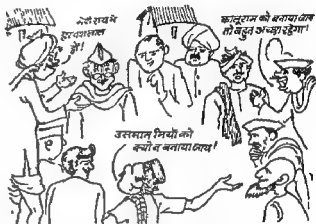 मेरी राय में
द्वारकालाल
हो!
कालूराम को बनाया जाय
तो बहुत अच्छा रहेगा!
उसमान मियाँ को
क्यों न बनाया जाय!